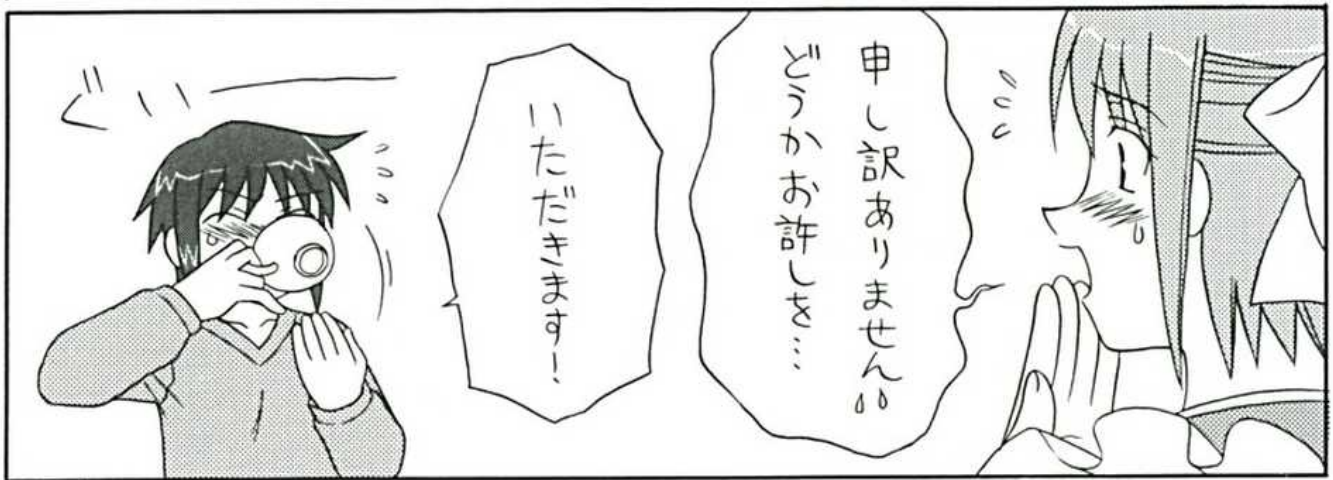 申し訳ありません
どうかお許しを…
いただきます!
ぐいっ